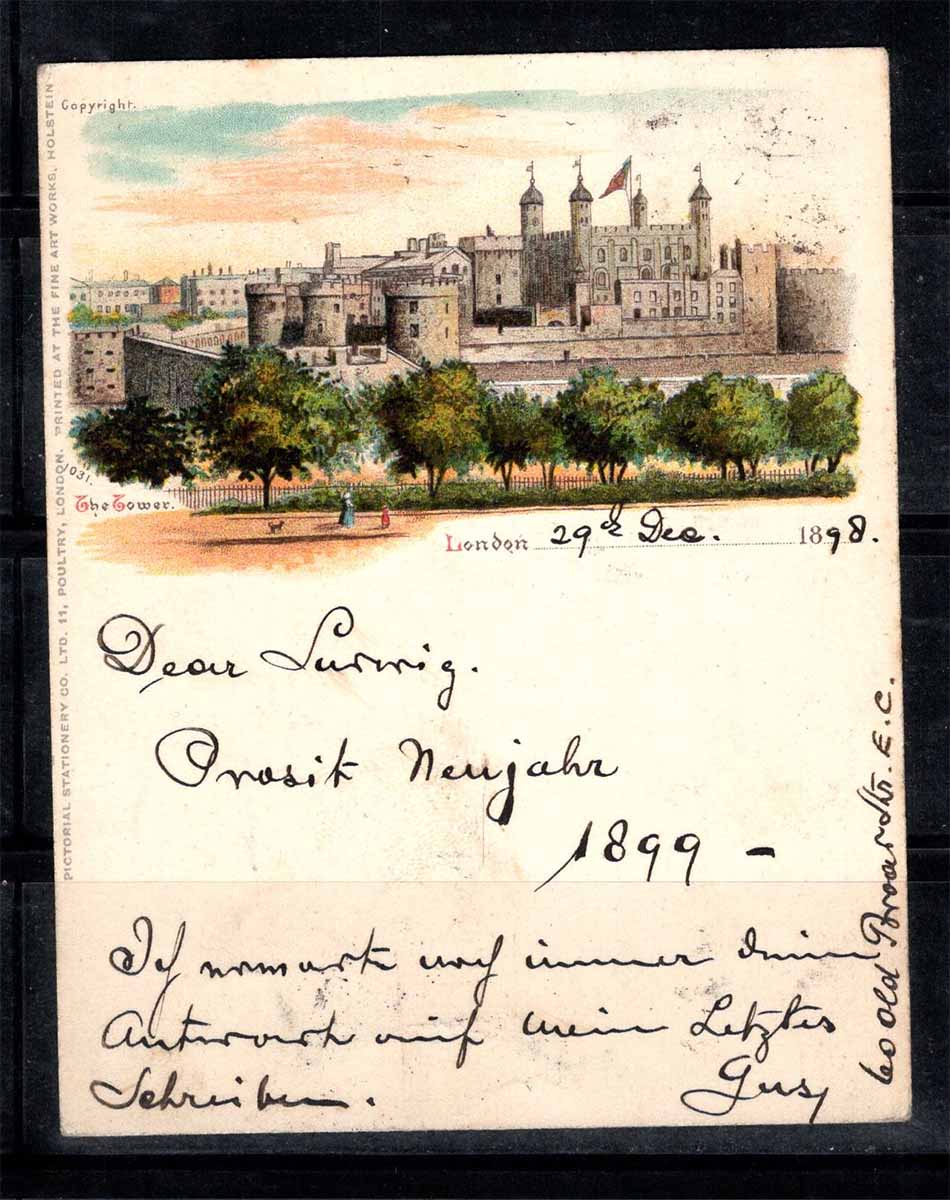 Copyright.
PICTORIAL STATIONERY CO. LTD. 11, POULTRY, LONDON. PRINTED AT THE FINE ART WORKS, HOLSTEIN
1031.
The Tower.
London 29th Dec. 1898.
Dear Ludwig.
Prosit Neujahr
1899 –
Ich erwarte noch immer deine
Antwort auf mein Letztes
Schreiben.
Gus,
60 Old Broad Str. E.C.